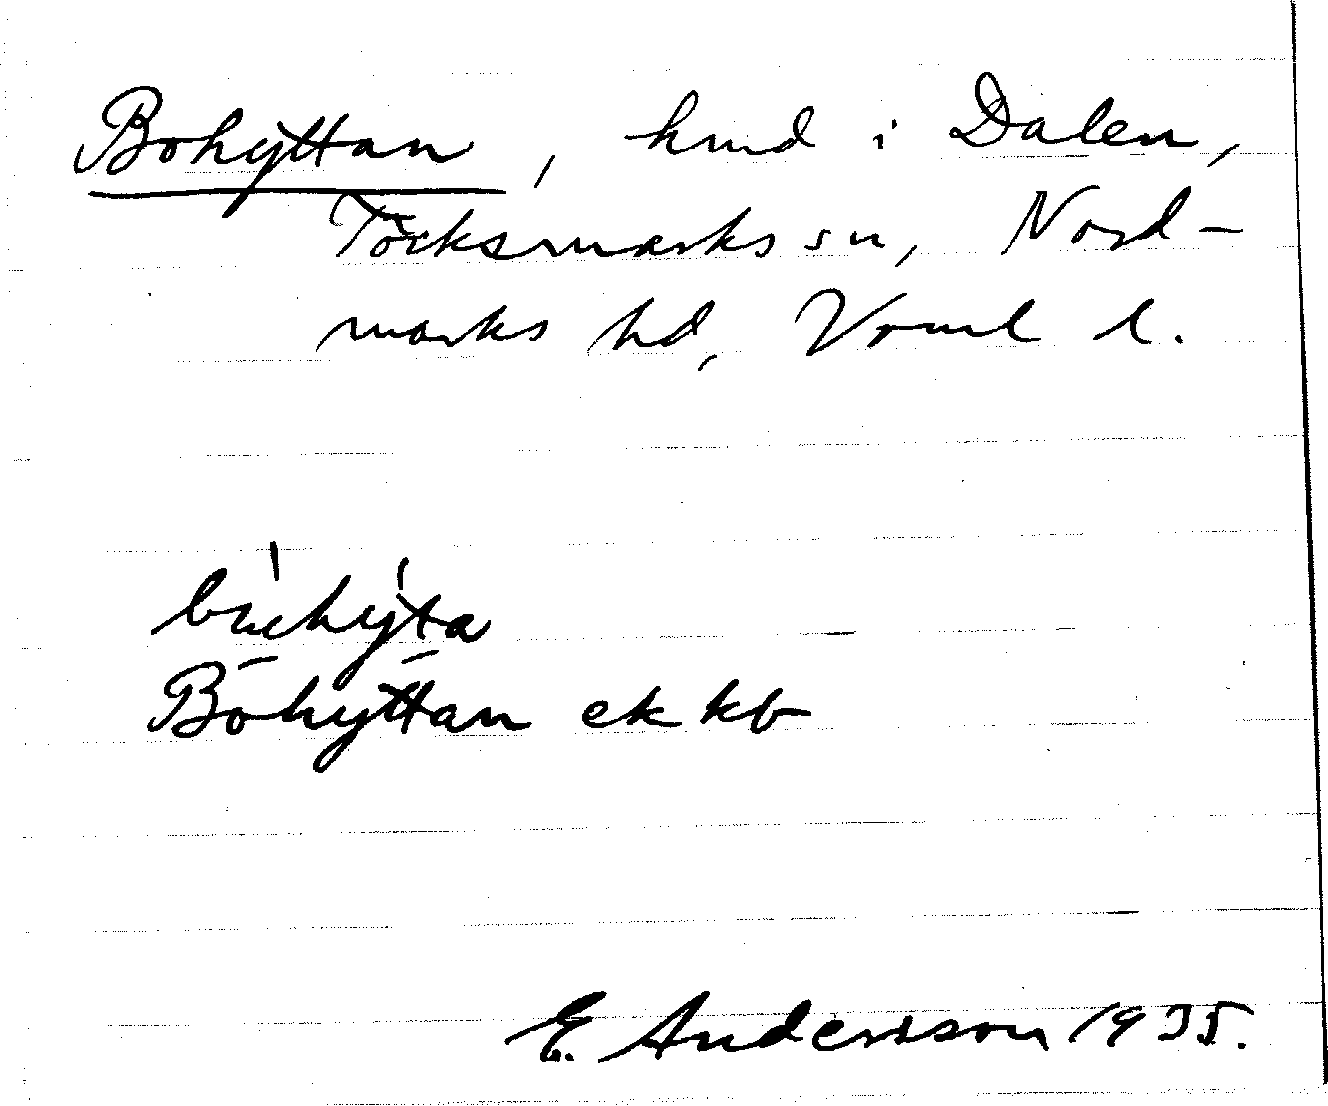 Bohyttan, hmd i Dalen,
Töcksmarks sn, Nord-
marks hd, Vrml l.
búehy̍ta
Bohyttan ek kb
E. Andersson 1935.